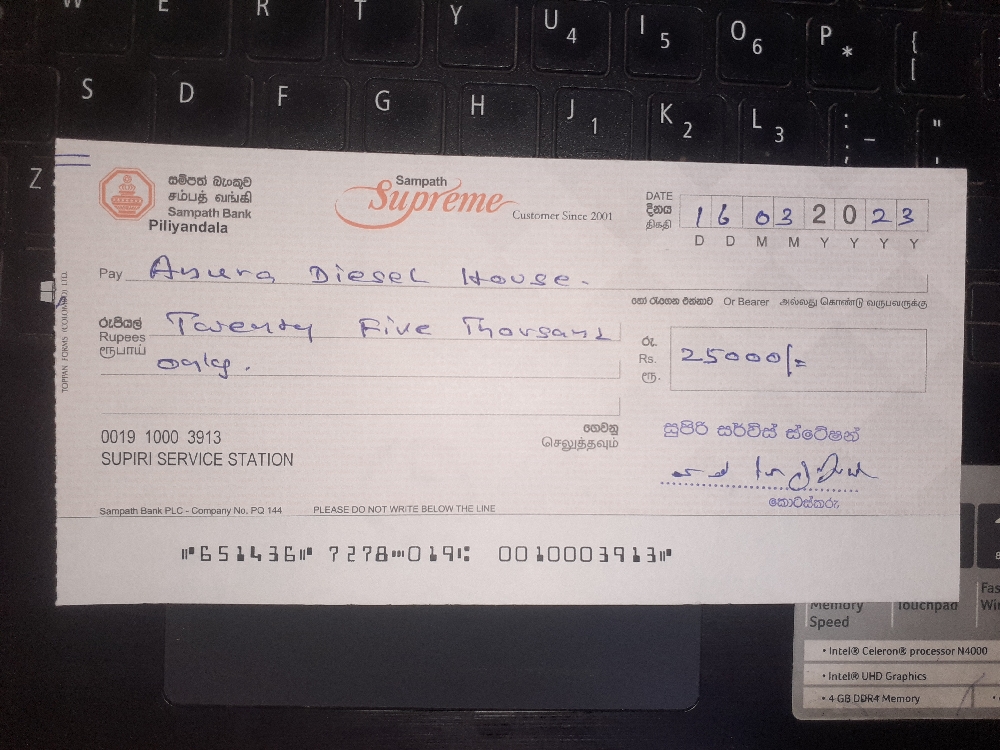 W E R T Y U 4 I 5 O 6 P * { [
S D F G H J 1 K 2 L 3 : ; _ "
Z
සම්පත් බැංකුව
சம்பத் வங்கி
Sampath Bank
Piliyandala
Sampath
Supreme
Customer Since 2001
DATE
දිනය
திகதி
16 03 2023
D D M M Y Y Y Y
Pay Anura Diesel House.
හෝ රැගෙන එන්නාට Or Bearer அல்லது கொண்டு வருபவருக்கு
රුපියල්
Rupees
ரூபாய்
Twenty Five Thousand
only.
රු.
Rs.
ரூ.
25000/=
TOPPAN FORMS (COLOMBO) LTD.
0019 1000 3913
SUPIRI SERVICE STATION
ගෙවනු
செலுத்தவும்
සුපිරි සර්විස් ස්ටේෂන්
කොටස්කරු
Sampath Bank PLC - Company No. PQ 144 PLEASE DO NOT WRITE BELOW THE LINE
⑈651436⑈ 7278⑉019⑆ 0010003913⑈
Memory
Speed
Touchpad
Fas
Win
• Intel® Celeron® processor N4000
• Intel® UHD Graphics
• 4 GB DDR4 Memory